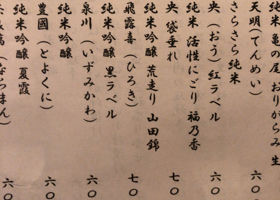 純米 亀の尾 おりがらみ 生
天明(てんめい)
さらさら純米
央(おう)紅ラベル
純米 活性にごり 福乃香 六〇
央 袋垂れ
純米吟醸 荒走り 山田錦 七〇
飛露喜(ひろき)
純米吟醸 黒ラベル 七〇
泉川(いずみかわ)
純米吟醸 六〇
豊國(とよくに)
純米吟醸 夏霞 六〇
六〇